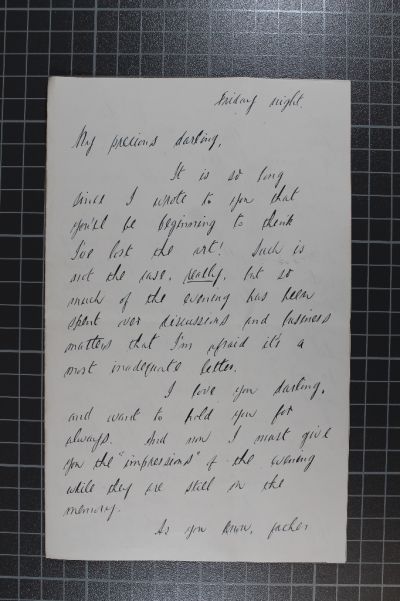 Friday night.
My precious darling,
It is so long
since I wrote to you that
you'll be beginning to think
I've lost the art! Such is
not the case, really, but so
much of the evening has been
spent over discussions and business
matters that I'm afraid it's a
most inadequate letter.
I love you darling,
and want to hold you for
always. And now I must give
you the "impressions" of the evening
while they are still in the
memory.
As you know, father